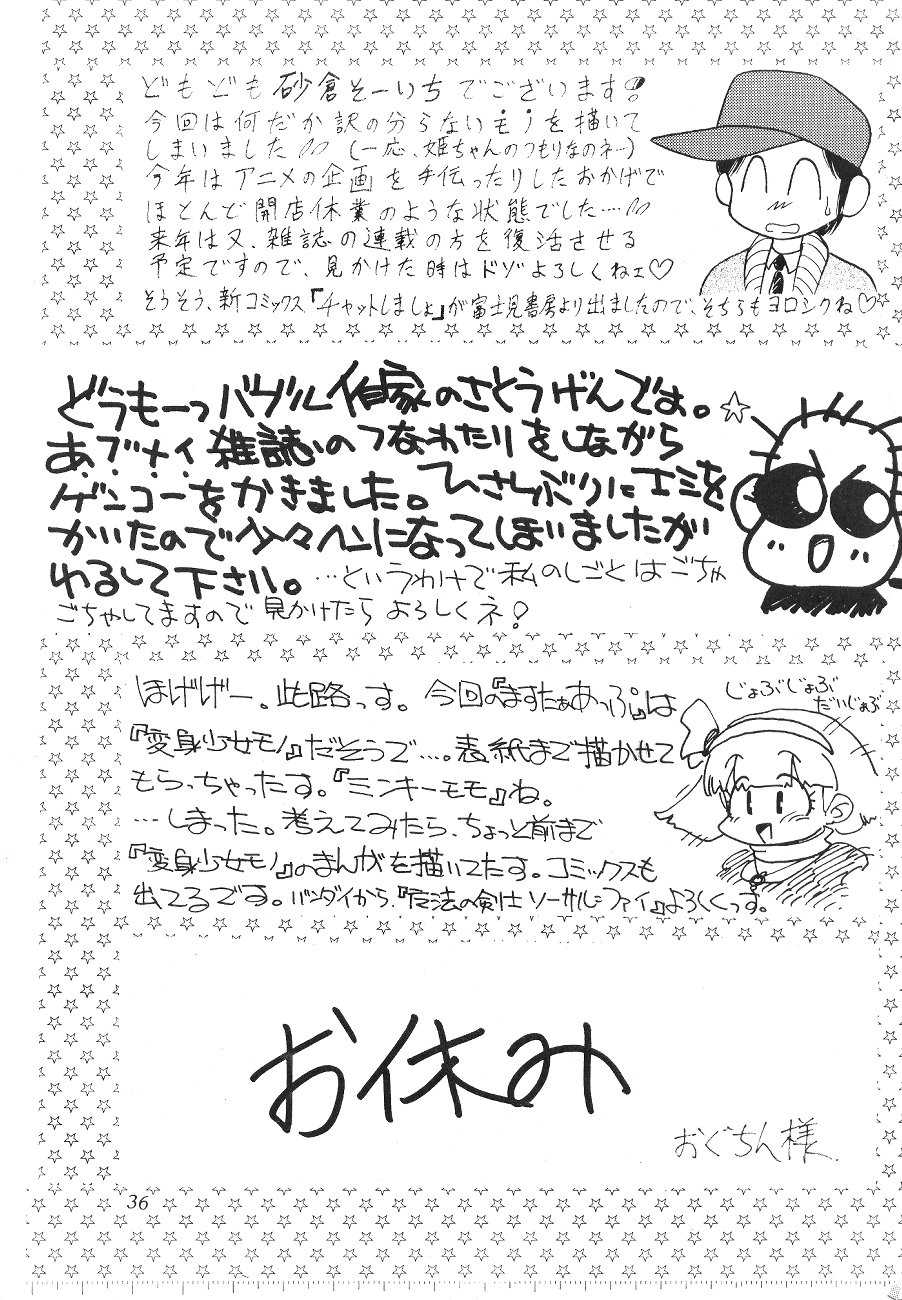 どもども砂倉そーいちでございます!
今回は何だか訳の分らないモノを描いて
しまいました (一応、姫ちゃんのつもりなのネ…)
今年はアニメの企画を手伝ったりしたおかげで
ほとんど開店休業のような状態でした…
来年は又、雑誌の連載の方を復活させる
予定ですので、見かけた時はドゾよろしくねェ♡
そうそう、新コミックス『チャットしましょ』が富士見書房より出ましたので、そちらもヨロシクね♡
どうもーっバヅル作家のさとうげんでは。☆
あ・ブ・ナ・イ雑誌のつなわたりをしながら
ゲンコーをかきました。ひさしぶりにエミを
かいたので少々ヘンになってしまいましたが
わるして下さい。…というわけで私のしごとはごちゃ
ごちゃしてますので見かけたらよろしくネ!
ほげげー。此路っす。今回の『ますたぁあっぷ』は
『変身少女モノ』だそうで…。表紙まで描かせて
もらっちゃったす。『ミンキーモモ』ね。
…しまった。考えてみたら、ちょっと前まで
『変身少女モノ』のまんがを描いてたす。コミックスも
出てるです。バンダイから『魔法の剣士ソーサル=ファイ』よろしくっす。
じょぶじょぶ
だいじょぶ
お休み
おぐちん様
36